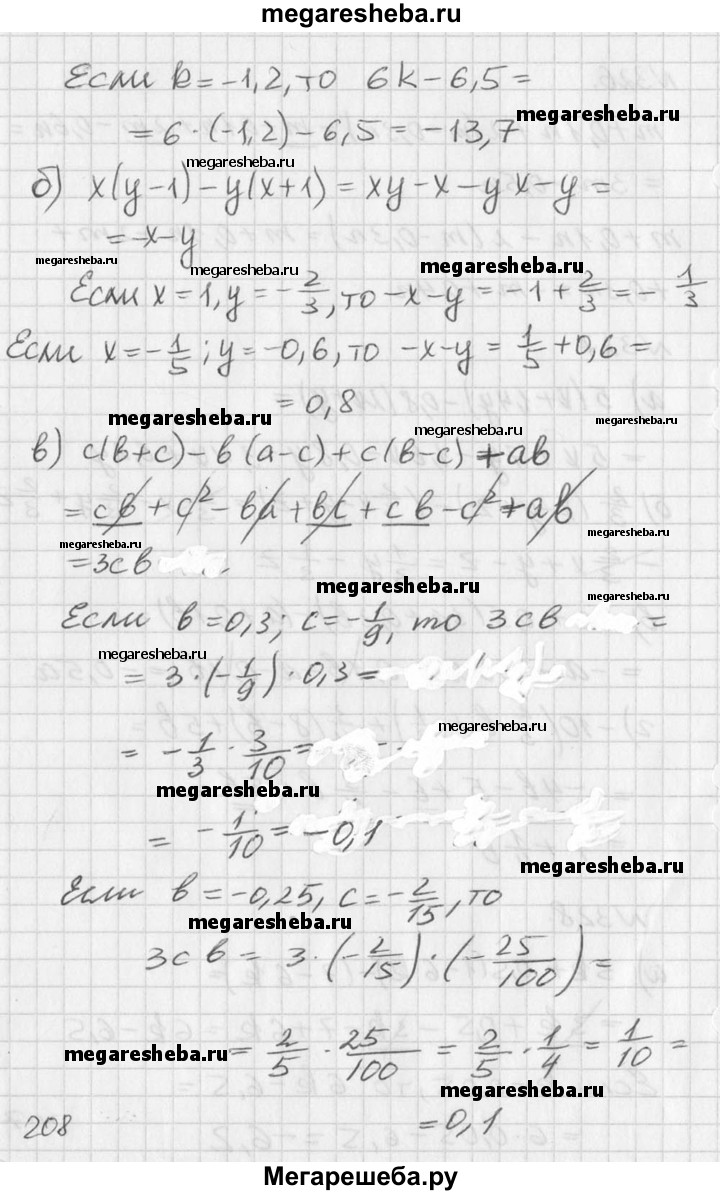 megaresheba.ru
Если k=-1,2, то 6k-6,5=
= 6·(-1,2)-6,5=-13,7
megaresheba.ru
megaresheba.ru
б) x(y-1)-y(x+1)=xy-x-yx-y=
= -x-y
megaresheba.ru
megaresheba.ru
megaresheba.ru
Если x=1, y=-2/3, то -x-y=-1+2/3=-1/3
Если x=-1/5; y=-0,6, то -x-y=1/5+0,6=
= 0,8
megaresheba.ru
megaresheba.ru
megaresheba.ru
в) c(в+c)-в(a-c)+c(в-c)+aв
= cв+c²-вa+вc+cв-c²+aв
megaresheba.ru
megaresheba.ru
=3cв
megaresheba.ru
megaresheba.ru
Если в=0,3; c=-1/9, то 3cв =
megaresheba.ru
= 3·(-1/9)·0,3=
megaresheba.ru
= -1/3·3/10=
megaresheba.ru
= -1/10=-0,1
megaresheba.ru
Если в=-0,25, c=-2/15, то
megaresheba.ru
3cв= 3·(-2/15)·(-25/100)=
megaresheba.ru
= 2/5·25/100=2/5·1/4=1/10=
megaresheba.ru
=0,1
208
Мегарешеба.ру